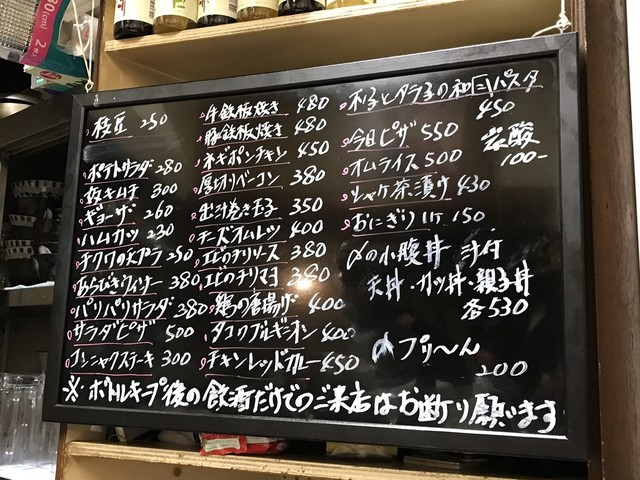 枝豆 250
ポテトサラダ 280
キムチ 300
ギョーザ 260
ハムカツ 230
チクワの天プラ 250
あらびきウィンナー 380
パリパリサラダ 380
サラダピザ 500
コンニャクステーキ 300
牛鉄板焼き 480
豚鉄板焼き 480
ネギポンチキン 450
厚切りベーコン 380
玉子 350
チーズオムレツ 400
エビチリソース 380
エビのチリマヨ 380
鶏の唐揚げ 400
400
チキンレッドカレー 450
タラ子の和風パスタ
450
今日ピザ 550
オムライス 500
シャケ茶漬け 430
おにぎり1ケ 150
炭酸
100-
〆の小腹丼 汁付
天丼・カツ丼・親子丼
各530
プリ〜ん
200
※ボトルキープ後の飲酒だけでのご来店はお断り願います